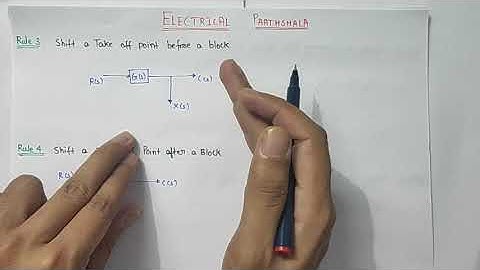 ELECTRICAL PARTHSHALA
Rule 3 Shift a Take off point before a block
R(s) G(s) C(s)
X(s)
Rule 4 Shift a Point after a Block
R(s) C(s)